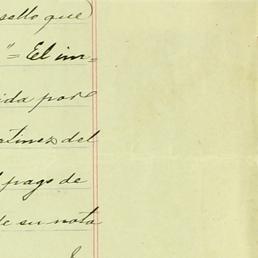 sello que
" = El im=
ida por
artinez del
l pago de
de su nota